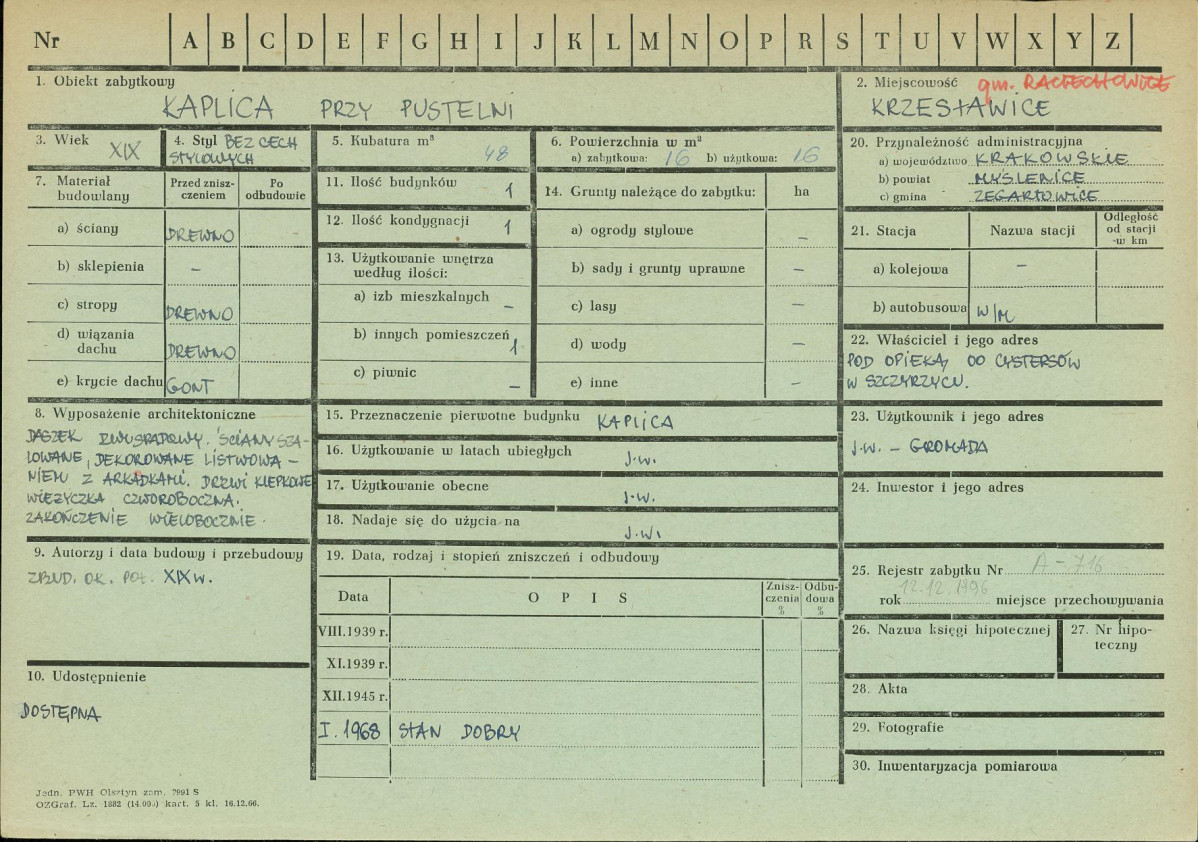 Nr A B C D E F G H I J K L M N O P R S T U V W X Y Z
1. Obiekt zabytkowy
KAPLICA PRZY PUSTELNI
2. Miejscowość gm. RACIECHOWICE
KRZESŁAWICE
3. Wiek XIX
4. Styl BEZ CECH
STYLOWYCH
5. Kubatura m³
48
6. Powierzchnia w m²
a) zabytkowa: 16 b) użytkowa: 16
20. Przynależność administracyjna
a) województwo KRAKOWSKIE
b) powiat MYŚLENICE
c) gmina ZEGARTOWICE
7. Materiał
budowlany
Przed znisz-
czeniem
Po
odbudowie
a) ściany DREWNO
b) sklepienia –
c) stropy DREWNO
d) wiązania
dachu DREWNO
e) krycie dachu GONT
11. Ilość budynków 1
12. Ilość kondygnacji 1
13. Użytkowanie wnętrza
według ilości:
a) izb mieszkalnych –
b) innych pomieszczeń 1
c) piwnic –
14. Grunty należące do zabytku: ha
a) ogrody stylowe –
b) sady i grunty uprawne –
c) lasy –
d) wody –
e) inne –
21. Stacja Nazwa stacji
Odległość
od stacji
w km
a) kolejowa –
b) autobusowa W/M
22. Właściciel i jego adres
POD OPIEKĄ OO CYSTERSÓW
W SZCZYRZYCU.
8. Wyposażenie architektoniczne
DASZEK DWUSPADOWY. ŚCIANY SZA-
LOWANE, DEKOROWANE LISTWOWA-
NIEM Z ARKADKAMI. DRZWI KLEPKOWE
WIEŻYCZKA CZWOROBOCZNA.
ZAKOŃCZENIE WIELOBOCZNIE.
15. Przeznaczenie pierwotne budynku KAPLICA
16. Użytkowanie w latach ubiegłych J.W.
17. Użytkowanie obecne J.W.
18. Nadaje się do użycia na J.W.
23. Użytkownik i jego adres
J.W. – GROMADA
24. Inwestor i jego adres
9. Autorzy i data budowy i przebudowy
ZBUD. OK. POŁ. XIX W.
19. Data, rodzaj i stopień zniszczeń i odbudowy
Data OPIS
Znisz-
czenia
%
Odbu-
dowa
%
VIII.1939 r.
XI.1939 r.
XII.1945 r.
I. 1968 STAN DOBRY
25. Rejestr zabytku Nr A-716
rok 12.12.1996 miejsce przechowywania
26. Nazwa księgi hipotecznej
27. Nr hipo-
teczny
28. Akta
29. Fotografie
30. Inwentaryzacja pomiarowa
10. Udostępnienie
DOSTĘPNA
Jedn. PWH Olsztyn zam. 7991 S
OZGraf. Lz. 1882 (14.000) kart. 5 kl. 16.12.66.